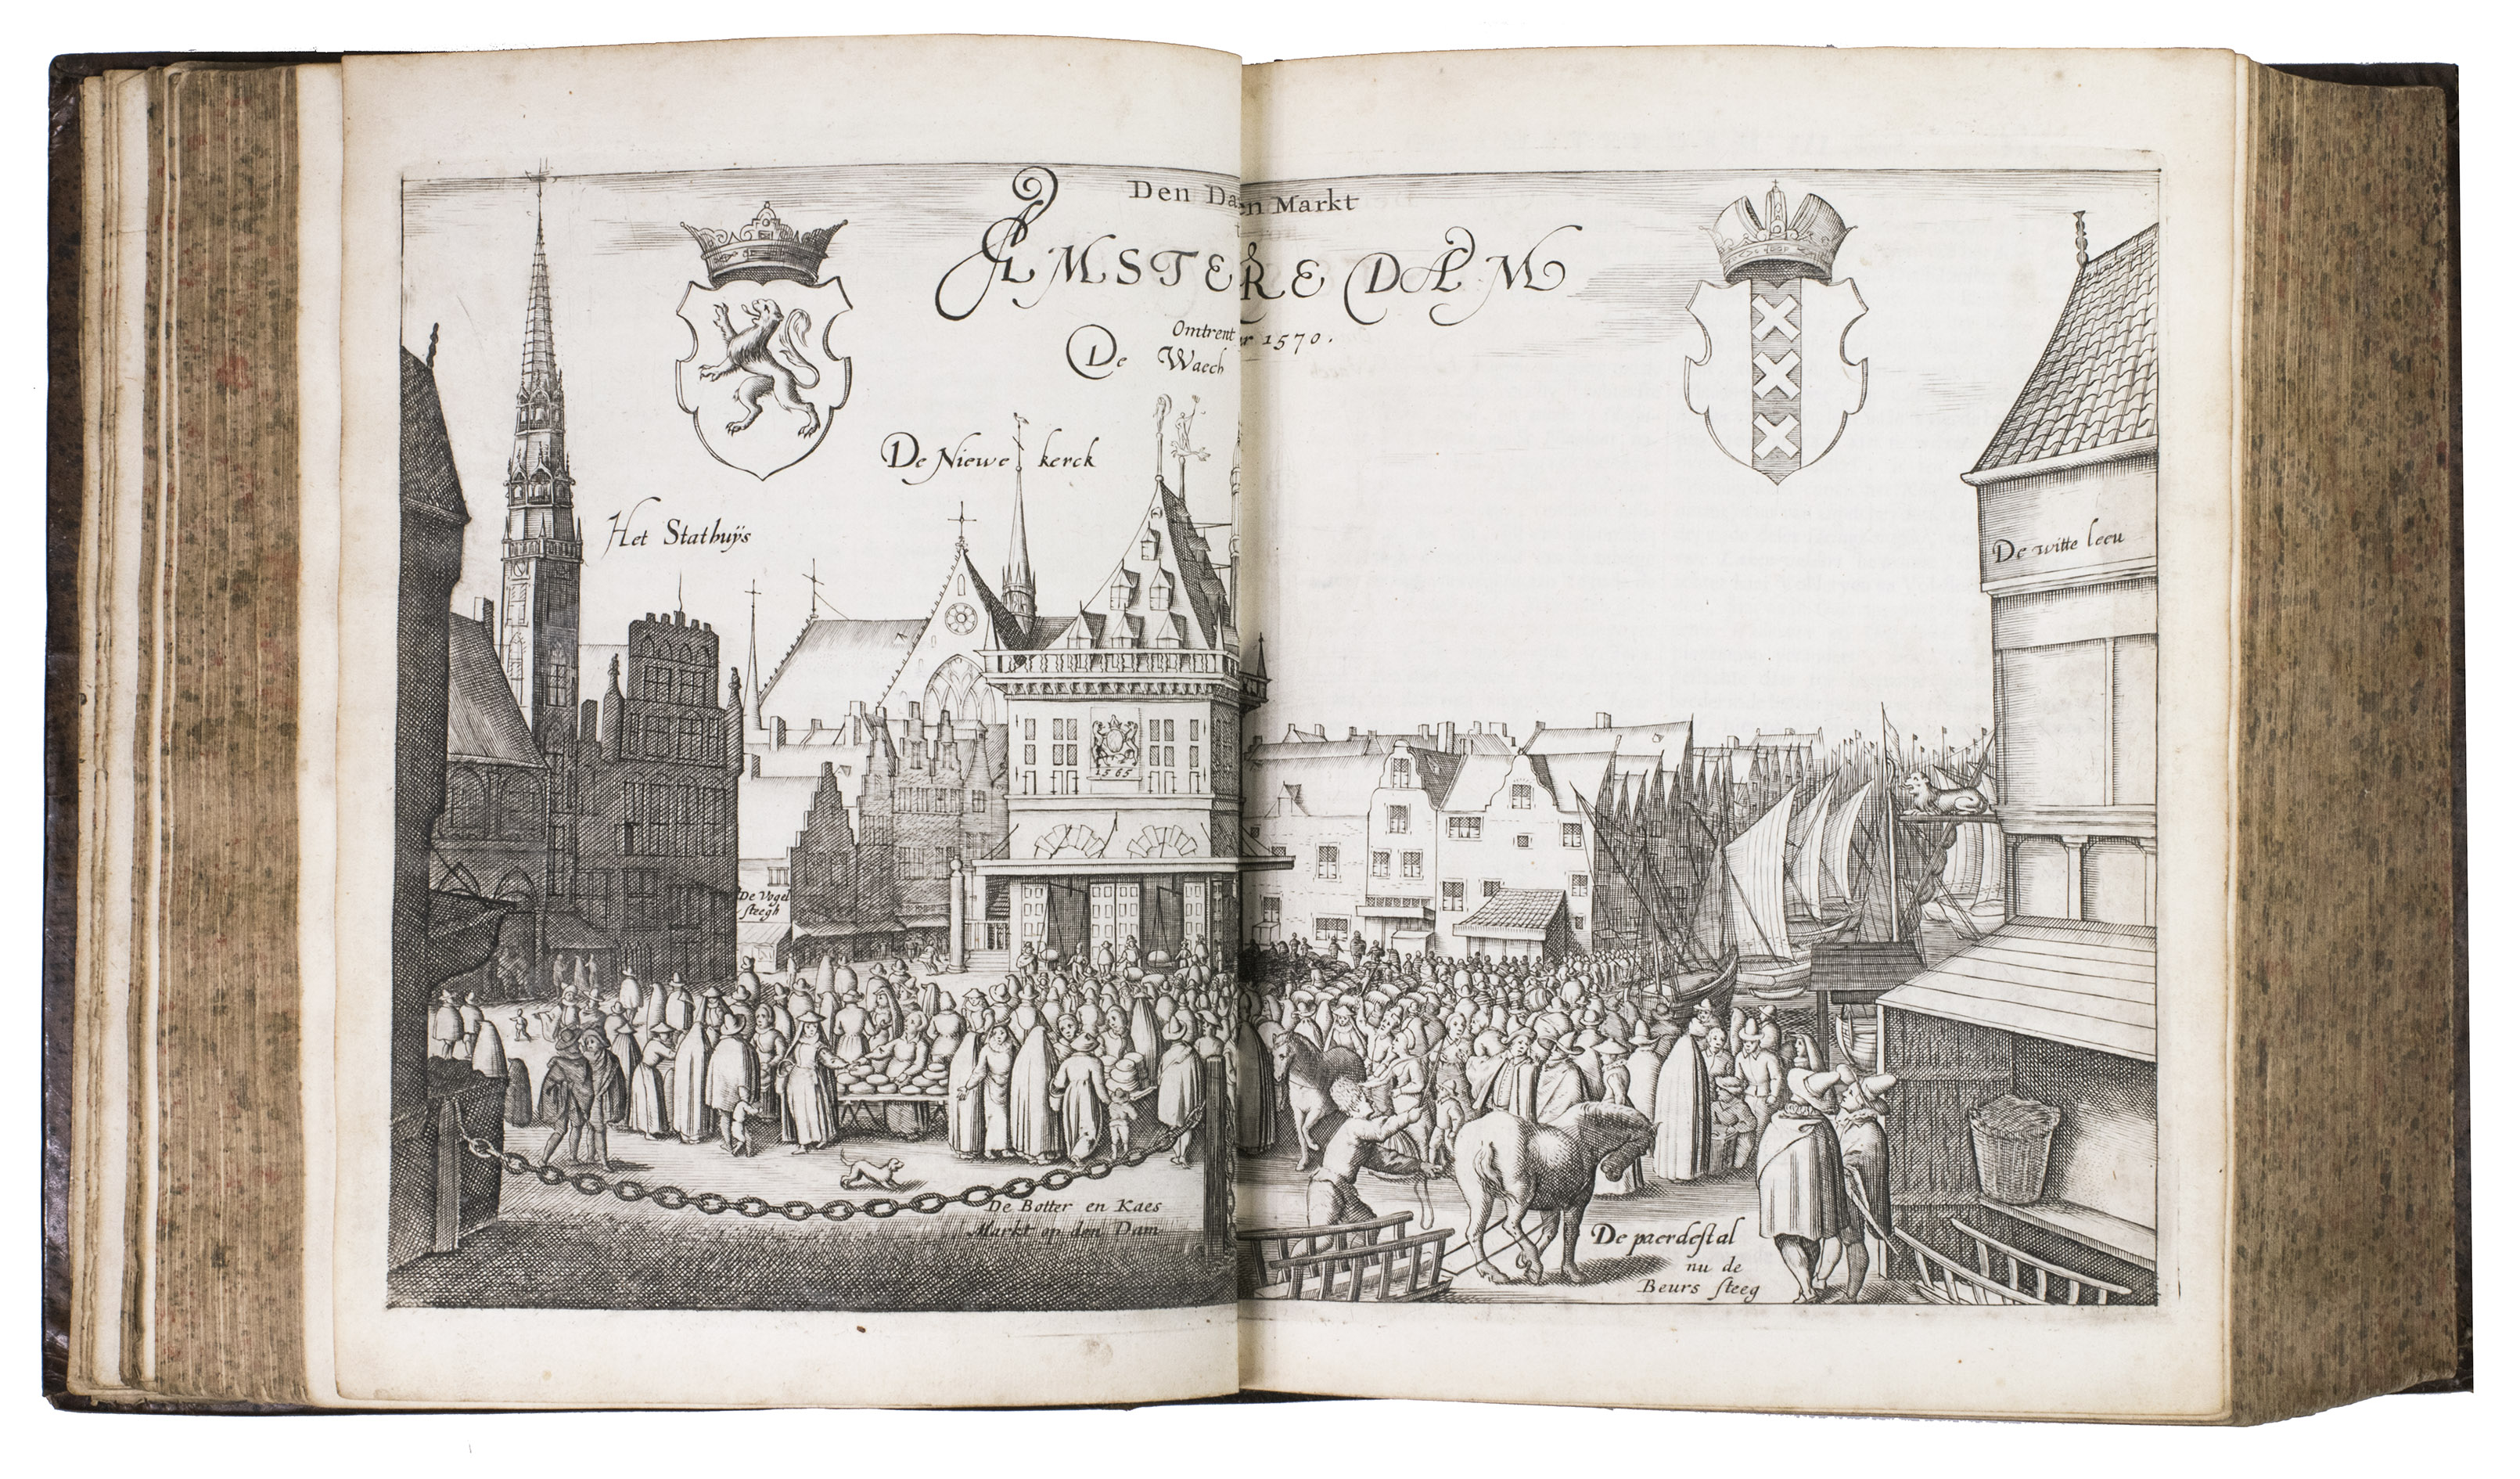 Den Da en Markt
AMSTEREDAM
Omtrent 1570.
De Waech
De Niewe kerck
Het Stathuÿs
De witte leeu
1565
De Vogel
steegh
De Botter en Kaes
Markt op den Dam
De paerdestal
nu de
Beurs steeg